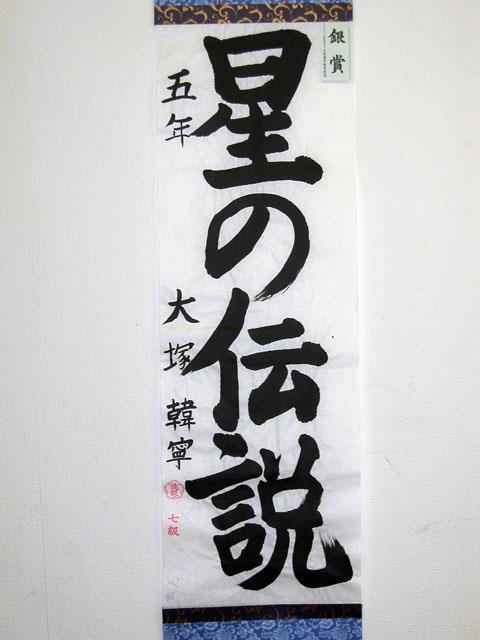 銀賞
星の伝説
五年 大塚韓寧
七級